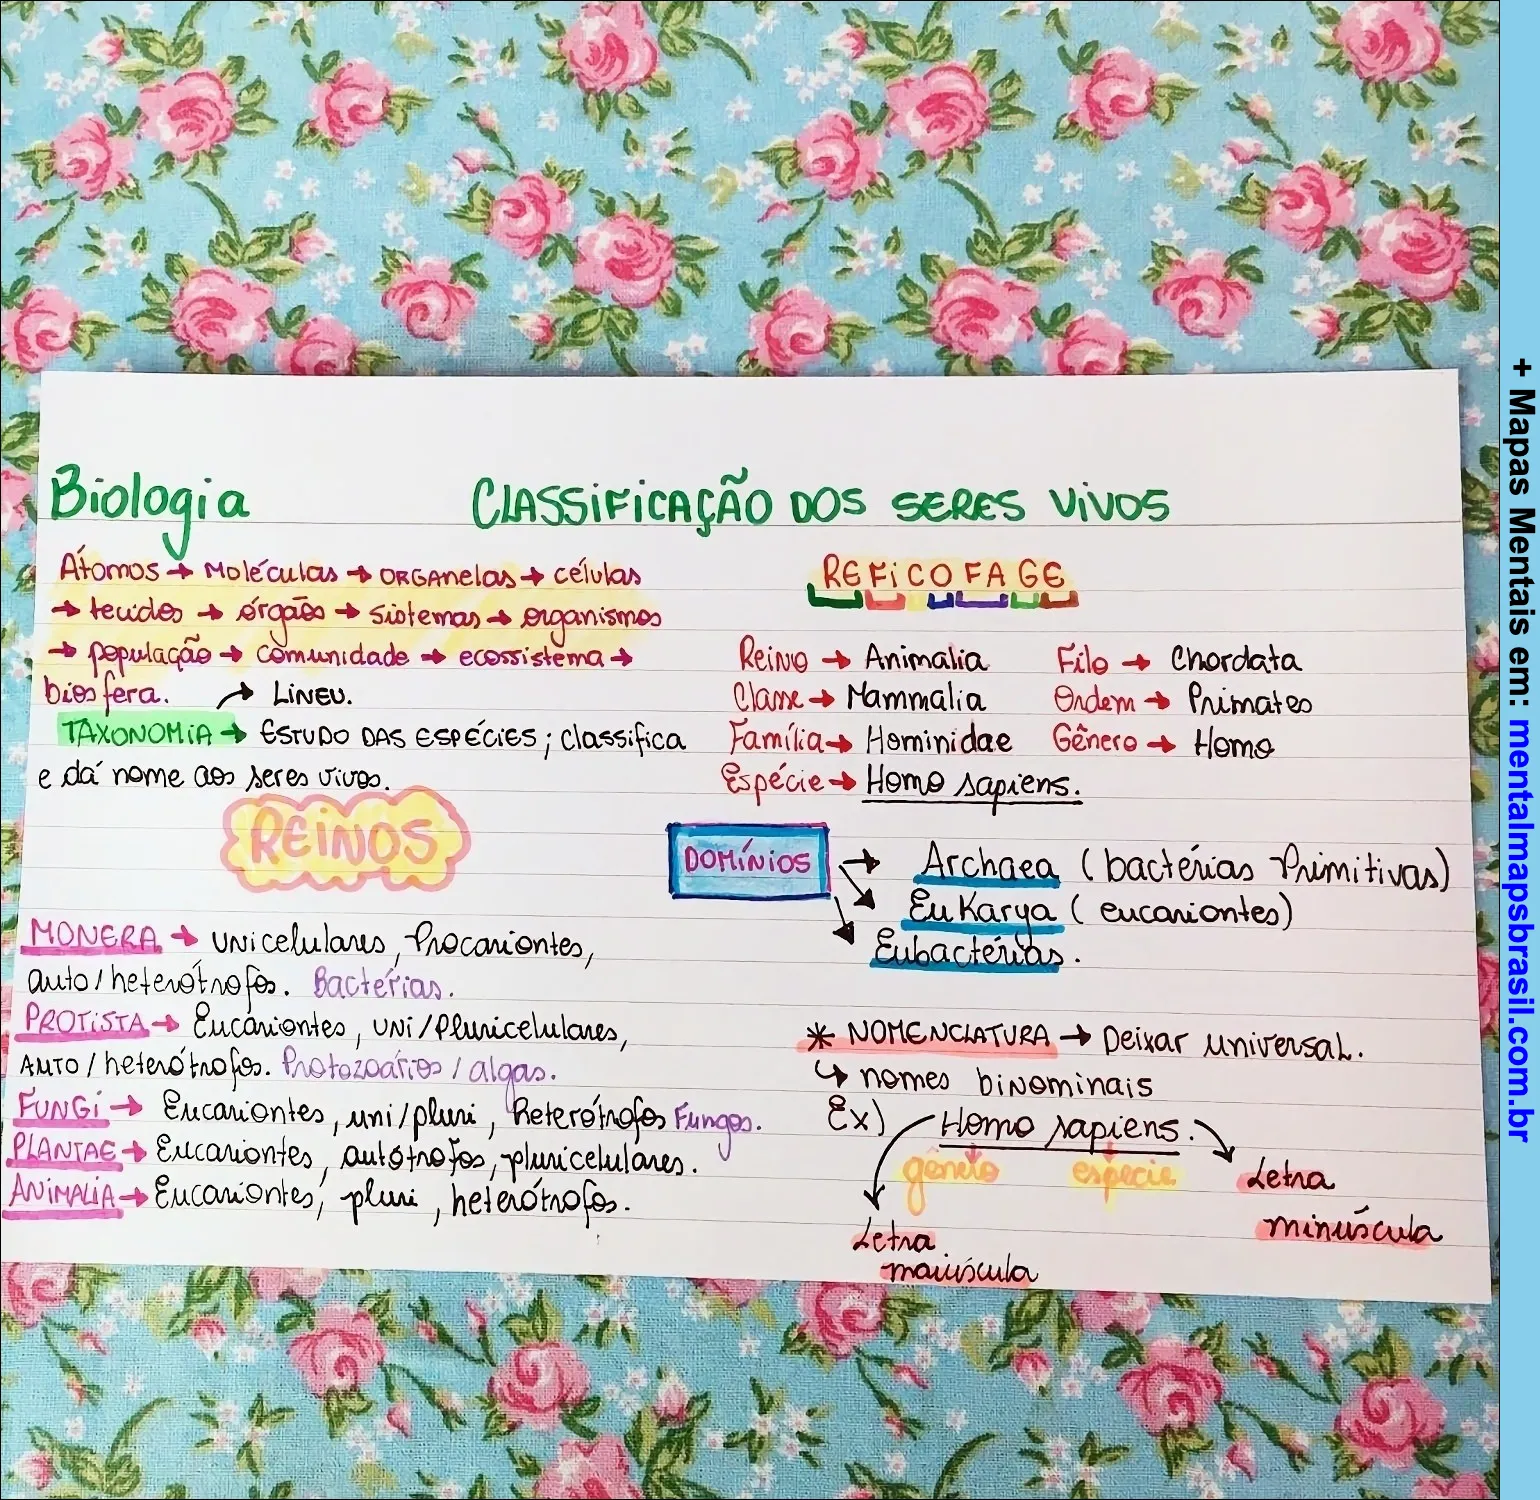 Biologia
CLASSIFICAÇÃO DOS SERES VIVOS
Átomos → Moléculas → ORGANELAS → células
→ tecidos → órgãos → sistemas → organismos
→ população → comunidade → ecossistema →
biosfera. → LINEU.
TAXONOMIA → ESTUDO DAS ESPÉCIES; classifica
e dá nome aos seres vivos.
REINOS
MONERA → UNICELULARES, Procariontes,
auto/heterótrofos. Bactérias.
PROTISTA → Eucariontes, UNI/Pluricelulares,
AUTO/heterótrofos. Protozoários / algas.
FUNGI → Eucariontes, uni/pluri, heterótrofos Fungos.
PLANTAE → Eucariontes, autótrofos, pluricelulares.
ANIMALIA → Eucariontes, pluri, heterótrofos.
REFICOFAGE
Reino → Animalia Filo → Chordata
Classe → Mammalia Ordem → Primates
Família → Hominidae Gênero → Homo
Espécie → Homo sapiens.
DOMÍNIOS → Archaea (bactérias Primitivas)
EuKarya (eucariontes)
Eubactérias.
* NOMENCLATURA → Deixar universal.
↳ nomes binominais
Ex) Homo sapiens.
gênero espécie
Letra
minúscula
Letra
maiúscula
+ Mapas Mentais em: mentalmapsbrasil.com.br